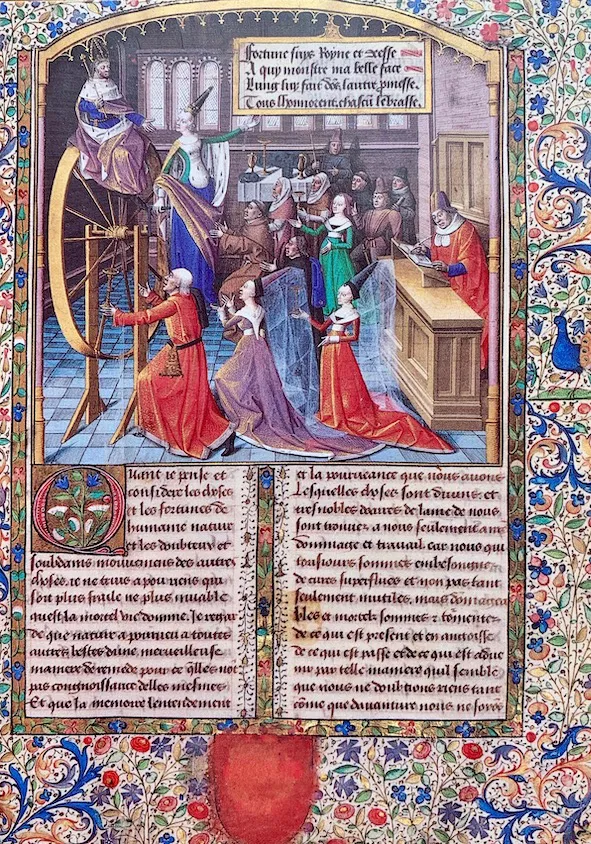 Fortune suys Royne et Deesse
A quy monstre ma belle face
Lung suy fait des lautre presse
Tous lhonnorent chascu lebrasse
Quant ie pense et
considere les choses
et les fortunes de
humaine nature
et les doubteux et
souldains mouuemens des autres
choses. ie ne truis a pou riens qui
soit plus fraile ne plus muable
quest la mortel vie domme. Je regar
de que nature a pourueu a toutes
autres bestes dune merueilleuse
maniere de remede pour ce qlles not
pas congnoissance delles mesmes
Et que la memoire lentendement
et la pourueance que nous auons
Lesquelles choses sont diuins et
tresnobles dœurs de lame de nous
sont tournez a nous seulement en
dommage et trauail. car nous qui
tousiours sommes embesongniez
de cures superflues et non pas tant
seulement inutiles, mais dommageu
bles et mortelz sommes tormentez
de ce qui est present et en angoisse
de ce qui est passe et de ce qui est aduē
nir par telle maniere quil semble
que nous ne doubtions riens tant
cōme que dauanture nous ne soiōs